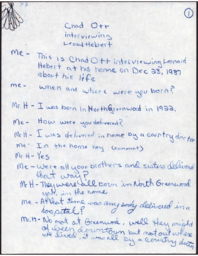 ①
Chad Ott
interviewing
Leonard Hebert
me - This is Chad Ott interviewing Leonard
Hebert at his home on Dec 23, 1987
about his life
me - when and where were you born?
Mr H - I was born in North Greenwood in 1922.
Me - How were you delivered?
Mr H - I was delivered in home by a country doctor
Me - In the home key (unknown)
Mr H - Yes
Me - Were all your brothers and sisters delivered
that way?
Mr H - They were all born in North Greenwood
yes, in the home
Me - At that time was any body delivered in a
hospital?
Mr H - No not at Greenwood. well they might
of been downtown but not out where
we lived it was all by a country doctor